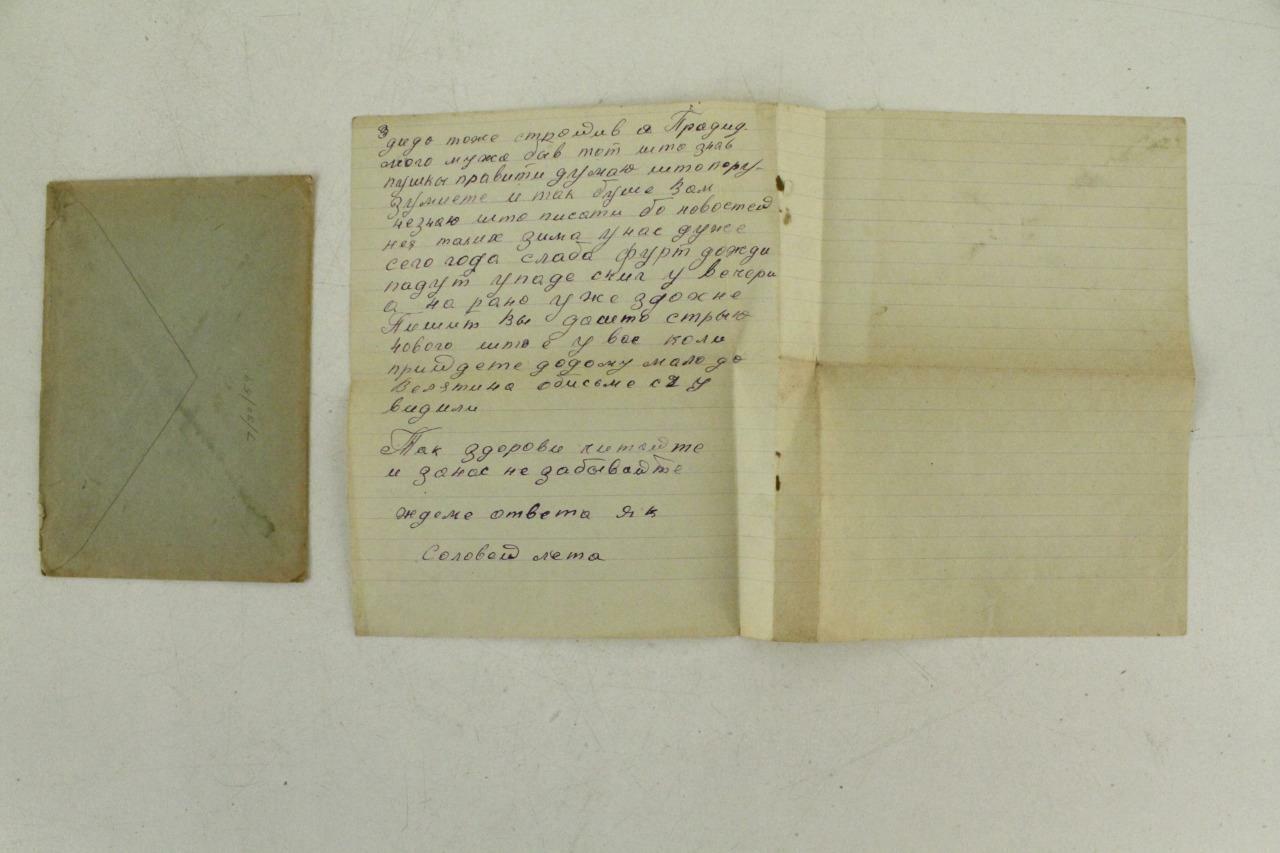 3
дидо тоже строив а Прадид
мого мужа быв тот што знав
пушкы правити думаю што пору-
зумиете и так булше Вам
незнаю што писати бо новостей
нея таких зима у нас дуже
сего года слаба фурт дожди
падут упаде сниг у вечери
а на рано уже здохне
Пишит Вы дашто стрыю
нового што є у вас коли
прийдете додому мало до
Велятина обисьме ся у
видили
Так здорови читайте
и занас не забывайте
ждеме ответа як
Соловей лета